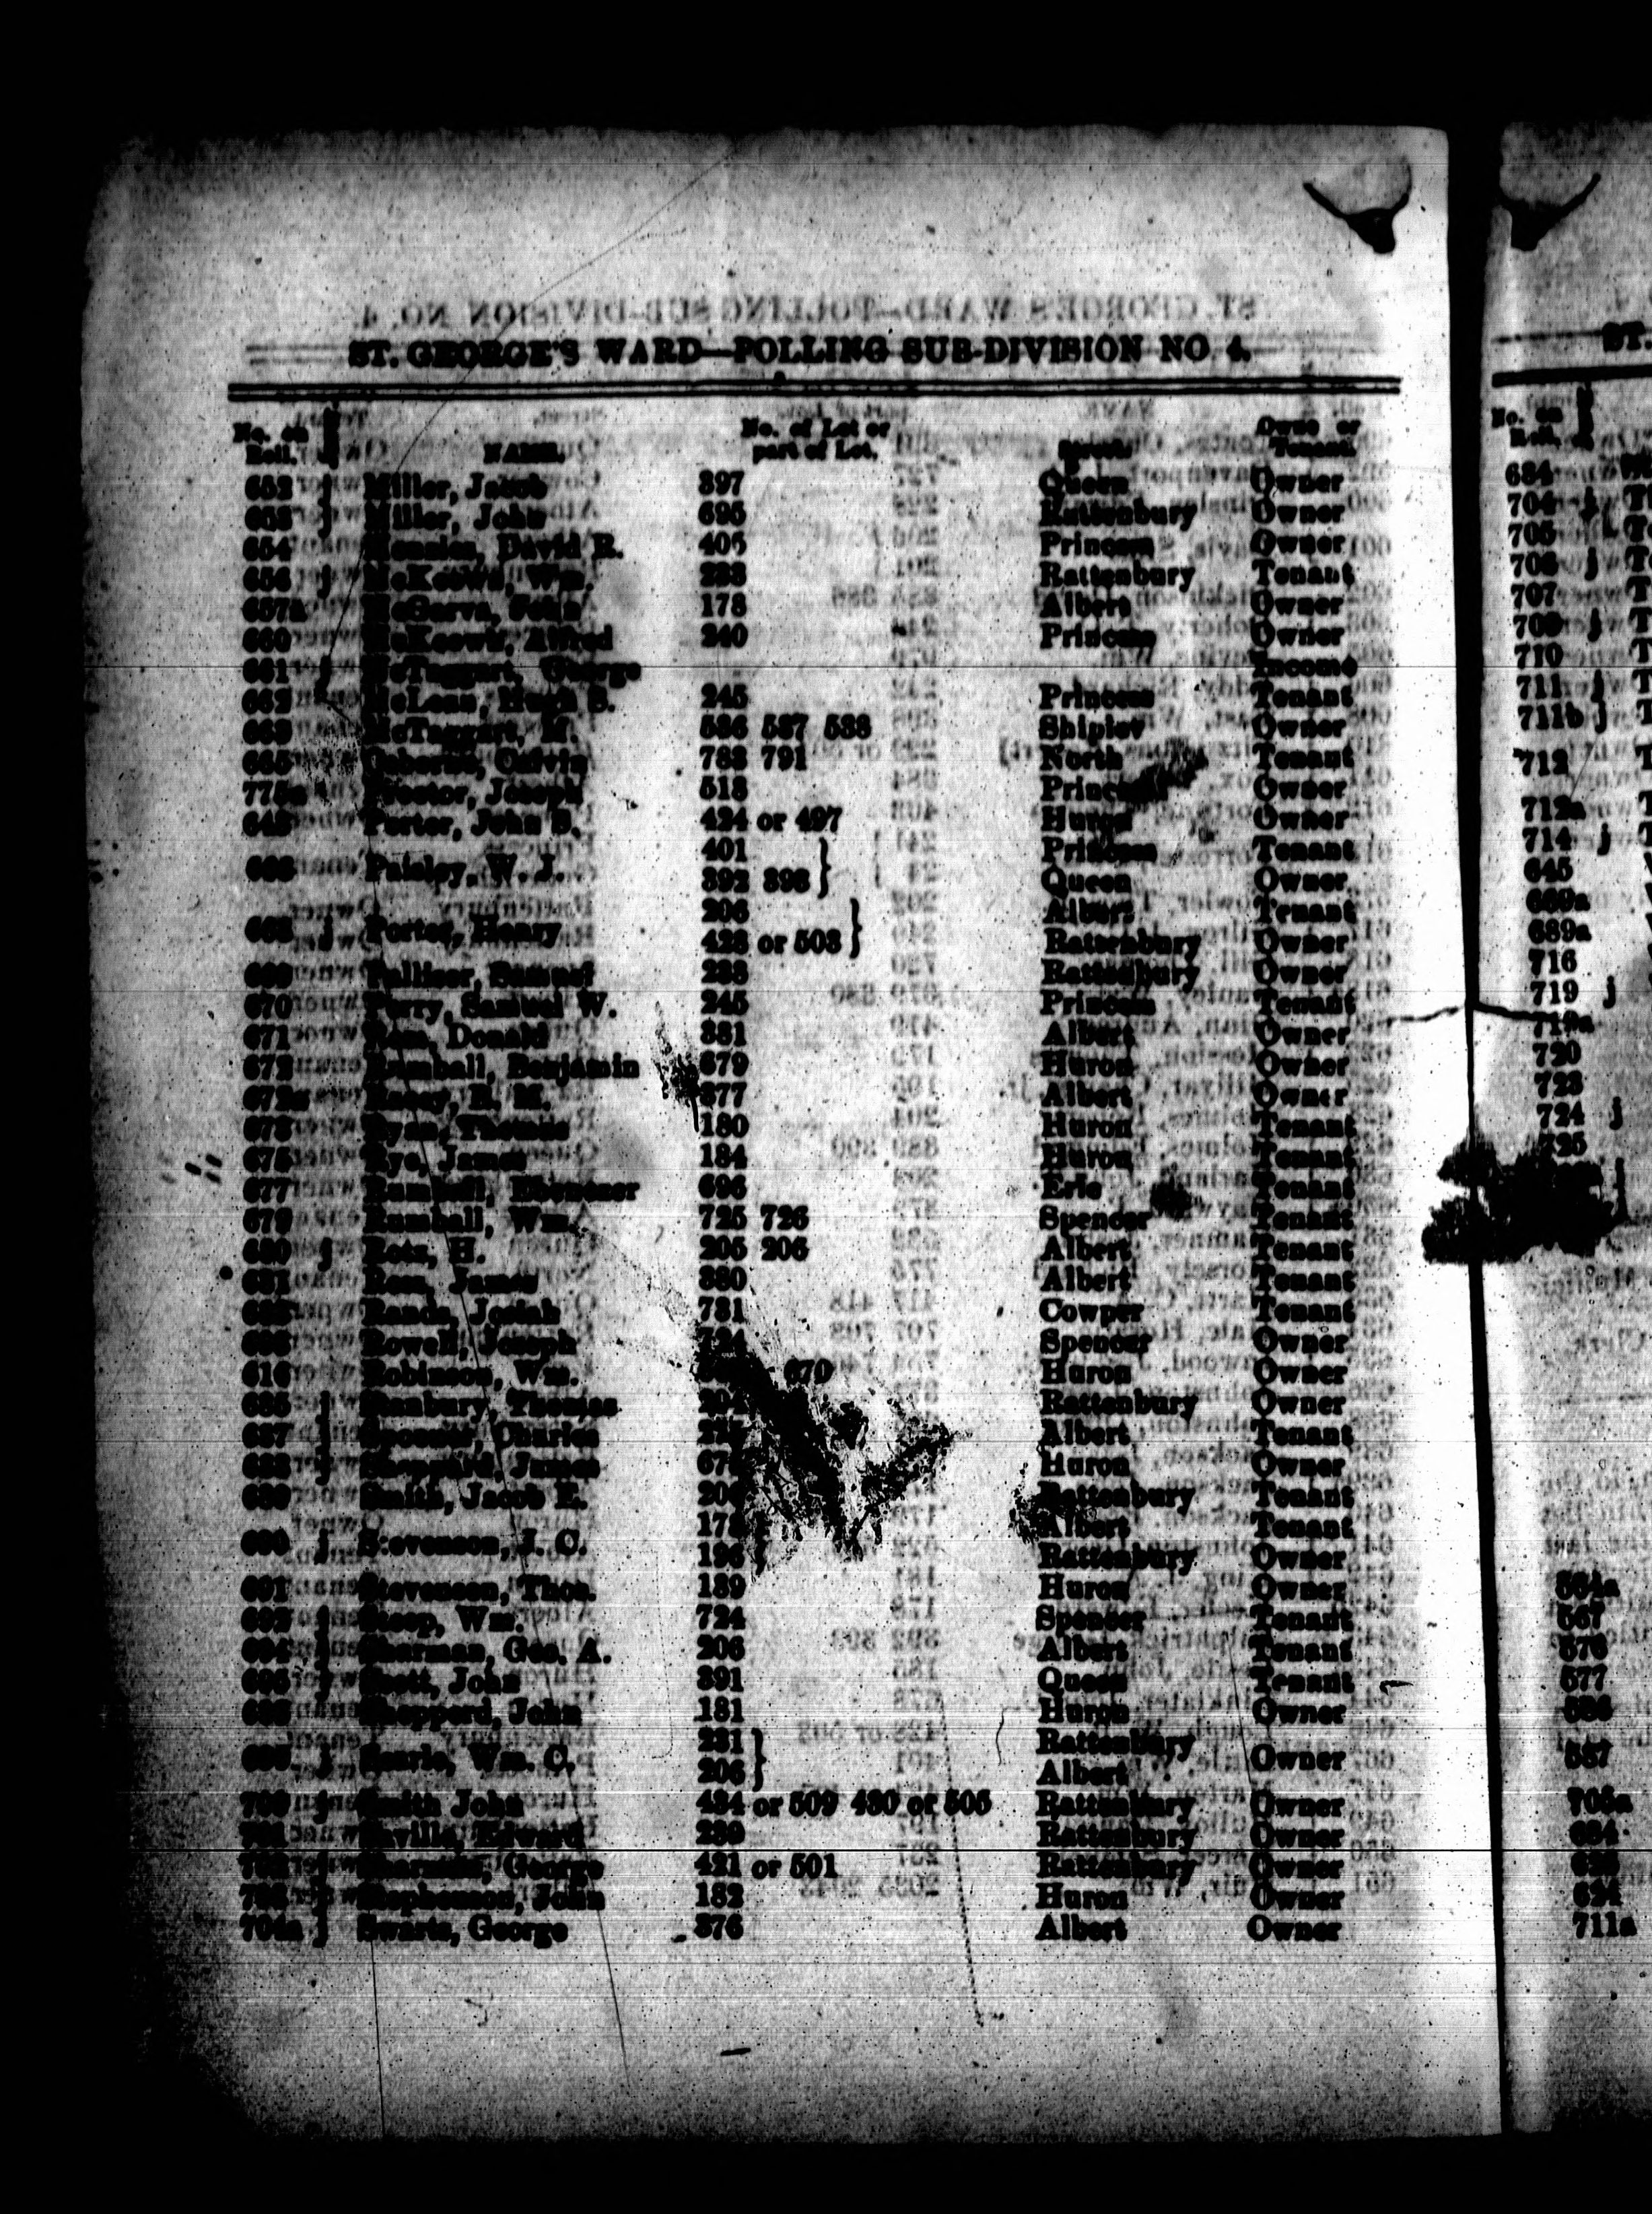 ST. GEORGE'S WARD—POLLING SUB-DIVISION NO 4.
No. on No. of Lot or Owner or
Roll. NAME. part of Lot. Street. Tenant.
652 j Miller, Jacob 397 Queen Owner
653 j Miller, John 695 Rattenbury Owner
654 Menzies, David R. 405 Princess Owner
656 j McKeown, Wm. 233 Rattenbury Tenant
657a John 178 Albert Owner
660 McKeown, Alfred 240 Princess Owner
661 McTaggart, George Income
662 McLean, Hugh S. 245 Princess Tenant
663 McTaggart, M. 586 587 588 Shipley Owner
665 Osborne, Calvin 788 791 North Tenant
Proctor, Joseph 518 Princess Owner
Porter, John S. 424 or 497 Huron Owner
401 Princess Tenant
666 Paisley, W. J. 392 393 } Queen Owner
206 Albert Tenant
668 j Porter, Henry 428 or 503 } Rattenbury Owner
669 Pulliser, Samuel 238 Rattenbury Owner
670 Perry, Samuel W. 245 Princess Tenant
671 Ross, Donald 381 Albert Owner
672 Rumball, Benjamin 679 Huron Owner
672a Racey, R. M. 377 Albert Owner
673 Ryan, Thomas 180 Huron Tenant
675 Rye, James 184 Huron Tenant
677 Rumball, Ebenezer 696 Erie Tenant
679 Rumball, Wm. 725 726 Spencer Tenant
680 j Rotz, H. 205 206 Albert Tenant
681 Ross, James 380 Albert Tenant
Rands, Josiah 781 Cowper Tenant
Rowell, Joseph 724 Spencer Owner
616 Robinson, Wm. 670 Huron Owner
685 j Stanbury, Thomas Rattenbury Owner
687 j Spooner, Charles Albert Tenant
688 j Sheppard, James Huron Owner
689 Smith, Jacob E. Rattenbury Tenant
Albert Tenant
690 j Stevenson, J. C. 196 } Rattenbury Owner
691 Stevenson, Thos. 189 Huron Owner
j Steep, Wm. 724 Spencer Tenant
694 j Sherman, Geo. A. 206 Albert Tenant
695 j Scott, John 391 Queen Tenant
Shepperd, John 181 Huron Owner
231 Rattenbury
j Searle, Wm. C. 206 } Albert Owner
700 j Smith John 434 or 509 430 or 505 Rattenbury Owner
701 Saville, Edward 230 Rattenbury Owner
j Sharman, George 421 or 501 Rattenbury Owner
j Stephenson, John 182 Huron Owner
704a j Swarts, George 376 Albert Owner
ST.
No. on
Roll.
684
704 j
705
706 j
707
709 j
710
711 j
711b j
712
712a
714 j
645
669a
689a
716
719 j
719a
720
723
724 j
725
564a
567
576
577
586
587
705a
684
624
711a